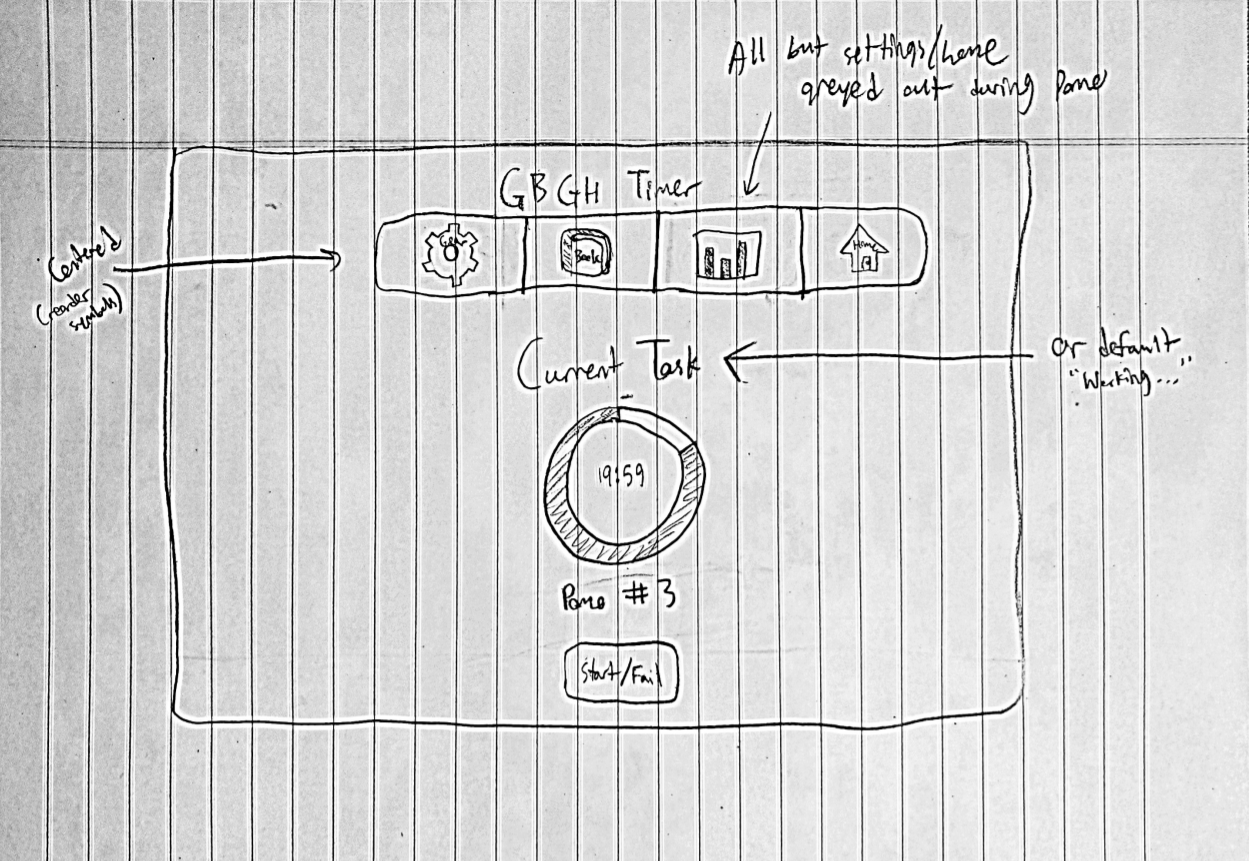 All but settings/home
greyed out during Pomo
GBGH Timer
Centered
(reorder
symbols)
Gear
Book
Home
Current Task
or default
"Working..."
19:59
Pomo #3
Start/Fail